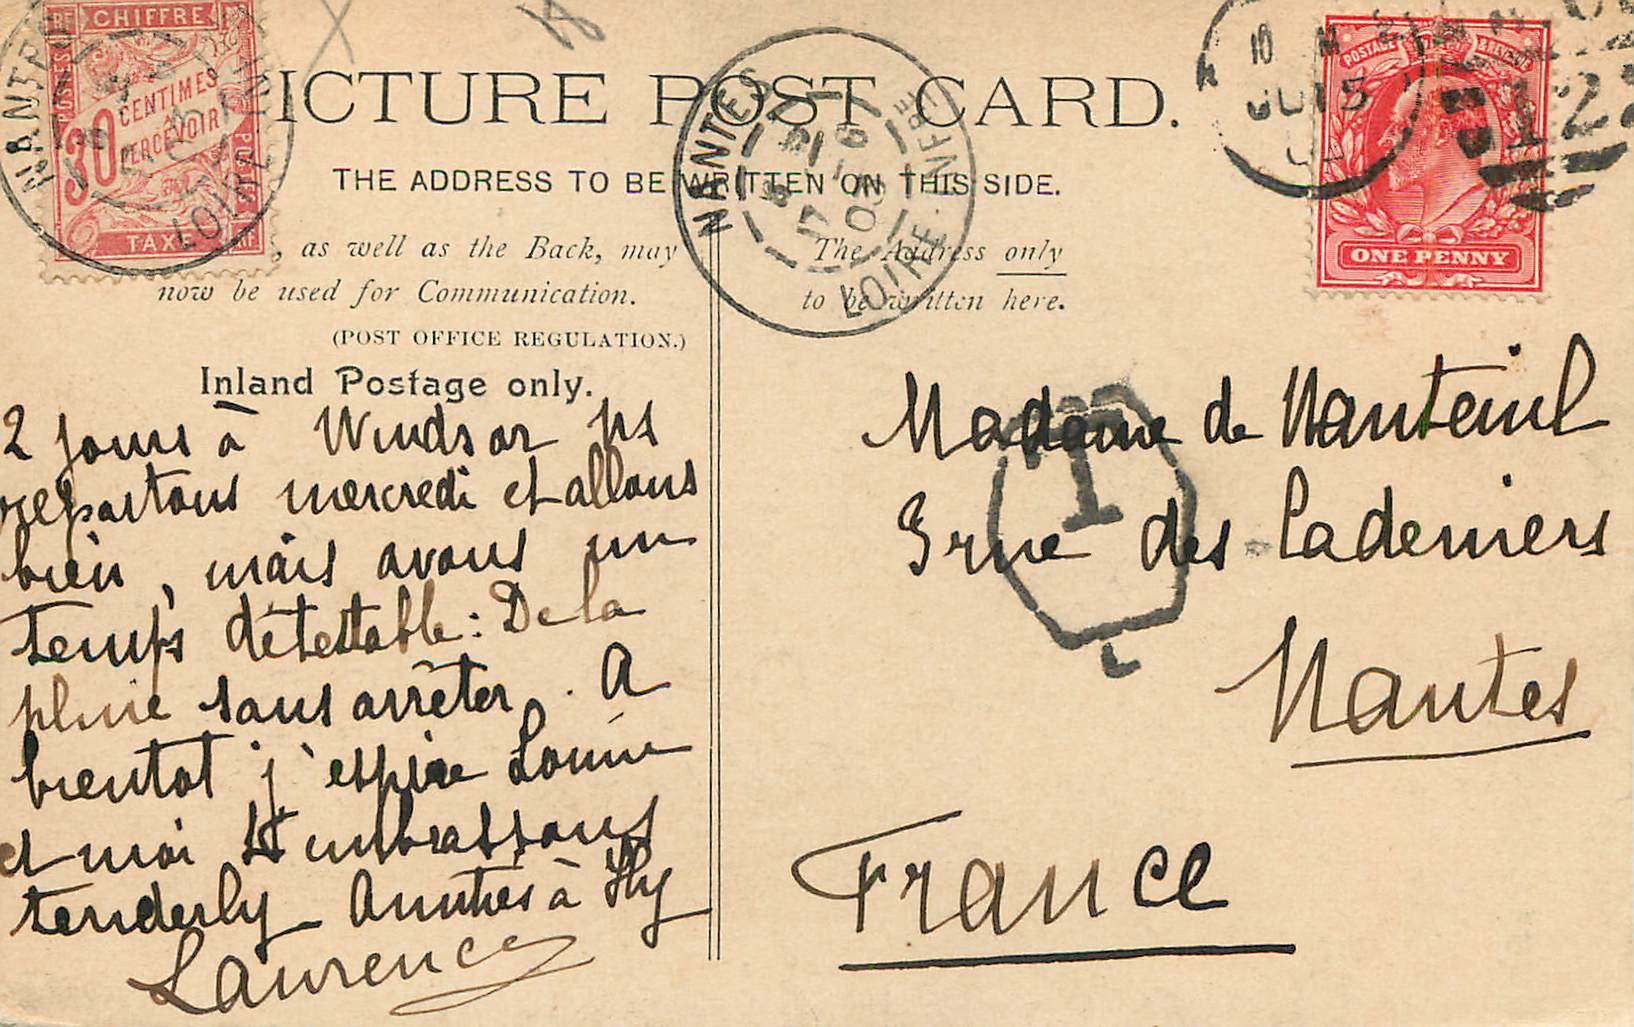 CHIFFRE
POSTES
30
CENTIMES
À
PERCEVOIR
TAXE
NANTES
LOIRE
PICTURE POST CARD.
THE ADDRESS TO BE WRITTEN ON THIS SIDE.
, as well as the Back, may
now be used for Communication.
(POST OFFICE REGULATION.)
Inland Postage only.
The Address only
to be written here.
NANTES
17 - 6
03
LOIRE - INFRE
POSTAGE & REVENUE
ONE PENNY
10
JU 15
T
L
2 jours à Windsor ns
repartons mercredi et allons
bien, mais avons un
temps détestable: De la
pluie sans arrêter. A
bientot j'espère Louise
et moi t'embrassons
tenderly - Amitiés à
Lawrence
Madame de Nanteuil
3 rue des Cadeniers
Nantes
France